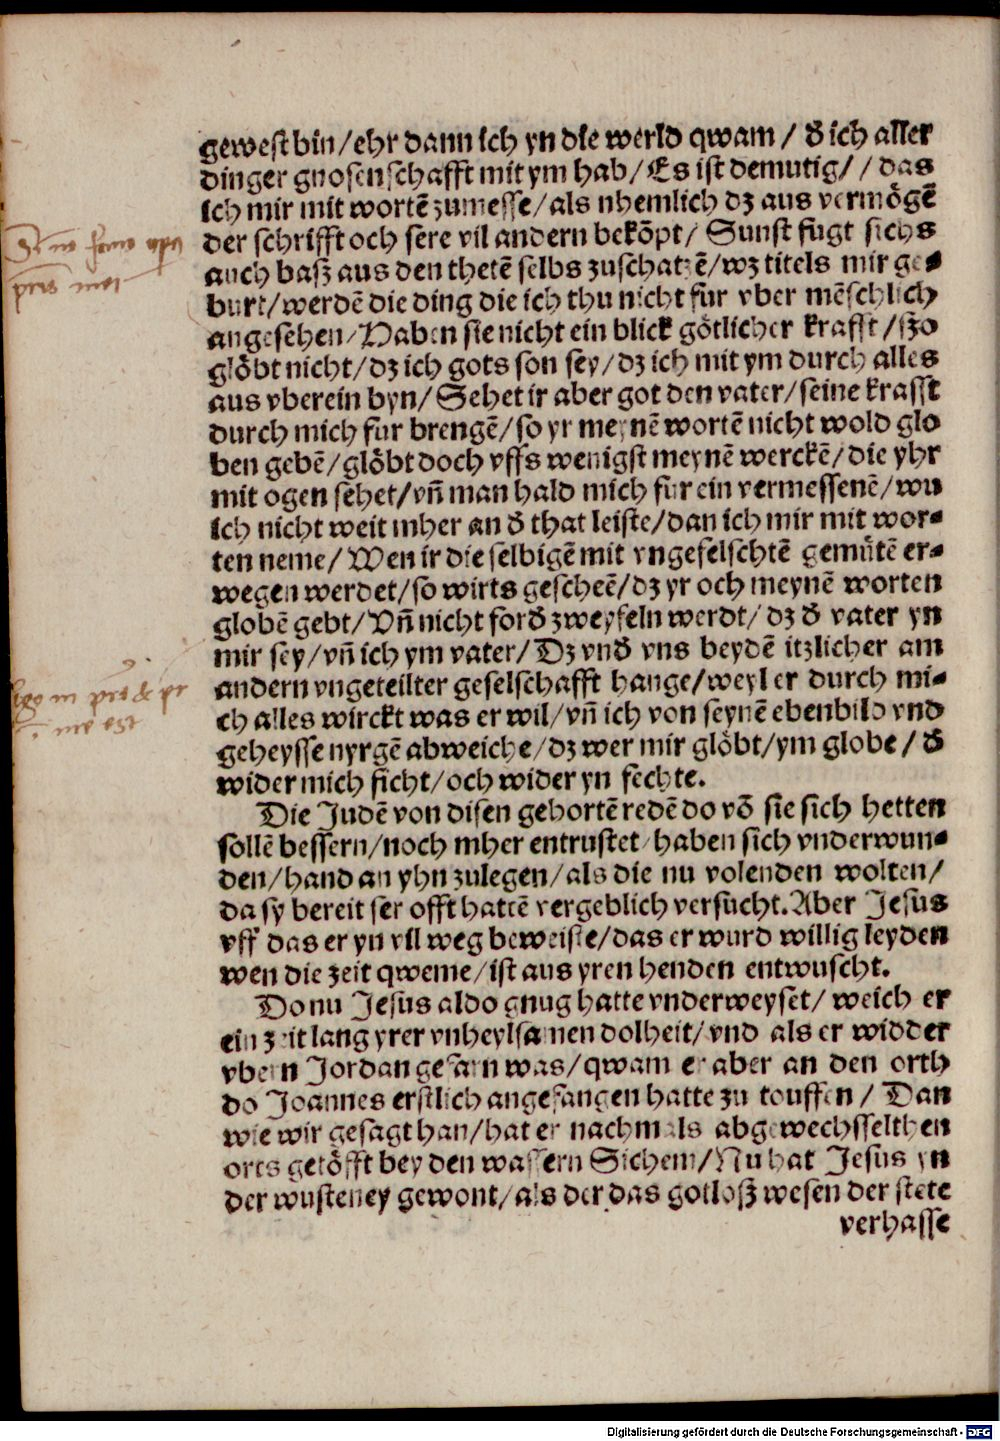 gewest bin/ehr dann ich yn die werld qwam / d̕ ich aller
dinger gnosenschafft mit ym hab/Es ist demutig/ / das
ich mir mit wortē zumesse/als nhemlich dz aus vermögē
der schrifft och sere vil andern bekōpt/ Sunst fugt sichs
auch basz aus den thetē selbs zuschatzē/wz titels mir ge⸗
burt/werdē die ding die ich thu nicht fur vber mēschlich
angesehen/Haben sie nicht ein blick götlicher krafft /szo
glöbt nicht/dz ich gots son sey/dz ich mit ym durch alles
aus vberein byn/ Sehet ir aber got den vater/seine krafft
durch mich fur brengē/so yr meynē wortē nicht wold glo
ben gebē/glöbt doch vffs wenigst meynē werckē/die yhr
mit ogen sehet/vn̄ man hald mich fur ein vermessenē/wu
ich nicht weit mher an d̕ that leiste/dan ich mir mit wor⸗
ten neme/ Wen ir die selbigē mit vngefelschtē gemütē er⸗
wegen werdet/so wirts gescheē/dz yr och meynē worten
globē gebt/Vn̄ nicht ford̕ zweyfeln werdt/ dz d̕ vater yn
mir sey/vn̄ ich ym vater/ Dz vnd̕ vns beydē itzlicher am
andern vngeteilter geselschafft hange/weyl er durch mi⸗
ch alles wirckt was er wil/vn̄ ich von seynē ebenbild vnd
geheysse nyrgē abweiche/dz wer mir glöbt/ym globe / d̕
wider mich ficht/och wider yn fechte.
Die Judē von disen gehortē redē do vō sie sich hetten
sollē bessern/noch mher entrustet/haben sich vnderwun⸗
den/hand an yhn zulegen/als die nu volenden wolten/
da sy bereit ser offt hattē vergeblich versucht. Aber Jesus
vff das er yn vil weg beweiste/das er wurd willig leyden
wen die zeit qweme/ist aus yren henden entwuscht.
Do nu Jesus aldo gnug hatte vnderweyset/ weich er
ein zeit lang yrer vnheylsamen dolheit/vnd als er widder
vbern Jordan gefarn was/qwam er aber an den orth
do Joannes erstlich angefangen hatte zu touffen / Dan
wie wir gesagt han/hat er nachmals abgewechsselthen
orts getöfft bey den wassern Sichem/Nu hat Jesus yn
der wusteney gewont/als der das gotlosz wesen der stete
verhasse
Ego in
me est
Digitalisierung gefördert durch die Deutsche Forschungsgemeinschaft - DFG